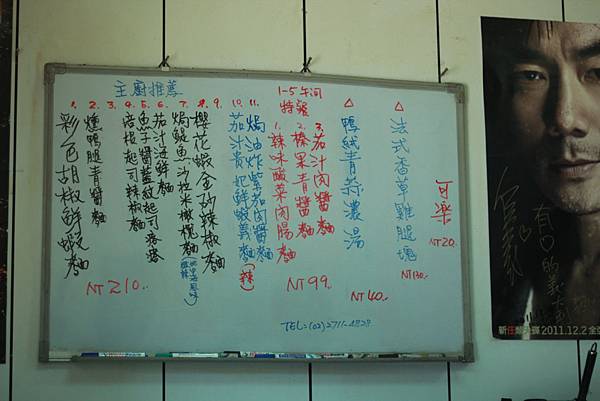 主廚推薦
1. 2. 3. 4. 5. 6. 7. 8. 9. 10. 11.
彩色胡椒鮮蝦麵
燻鴨腿青醬麵
起司辣椒麵
魚子醬蕃紋起司
茄汁海鮮麵
焗鯷魚沙拉米橄欖麵
櫻花蝦金沙辣椒麵
茄汁貴妃鮮蝦義麵
焗油炸紫茄肉醬麵(辣)
NT 210.-
1-5午間
特餐
1. 辣味酸菜肉腸麵
2. 榛果青醬麵
3. 茄汁肉醬麵
NT 99.
△
鴨絨青蒜濃湯
NT 40.-
△
法式香草雞腿塊
NT130.-
可樂
NT 20.
TEL=(02)2711-4829
有
的
新任 2011.12.2